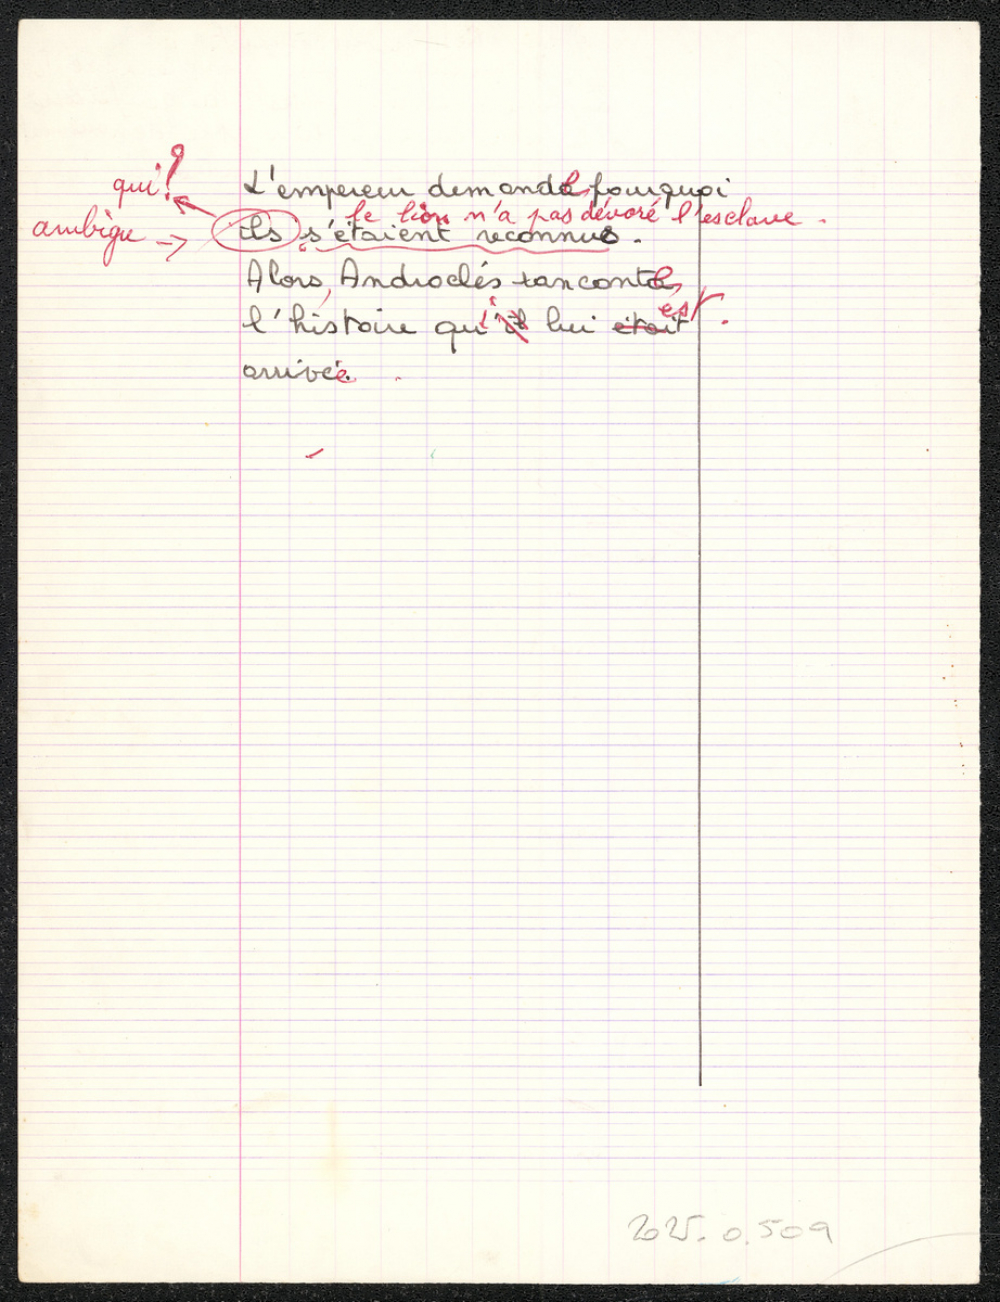 qui ?
L'empereur demande pourquoi
le lion n'a pas dévoré l'esclave .
ambigu →
ils s'étaient reconnus .
Alors, Androclès raconte
est
l'histoire qui il lui était
arrivée .
2025.0.509